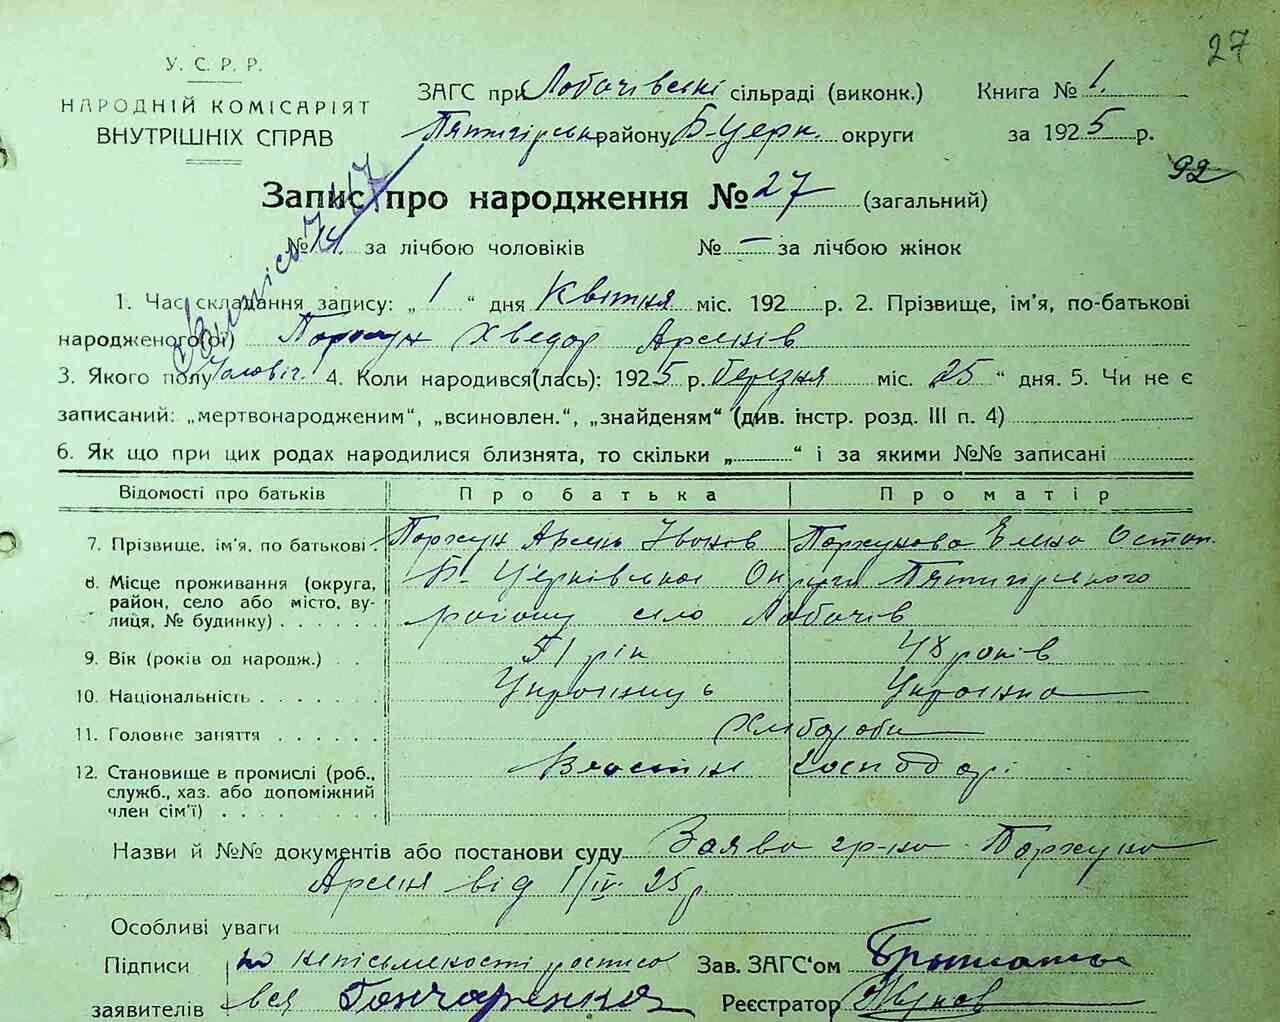 27
У. С. Р. Р.
НАРОДНІЙ КОМІСАРІЯТ
ВНУТРІШНІХ СПРАВ
ЗАГС при Лобачівські сільраді (виконк.) Книга № 1.
Пятигірськ району Б-Церк. округи за 1925 р.
92
Запис про народження № 27 (загальний)
№ 14. за лічбою чоловіків № — за лічбою жінок
1. Час складання запису: „ 1 “ дня Квітня міс. 192 р. 2. Прізвище, ім'я, по-батькові
народженого(ої) Хведор Арсенів
3. Якого полу Чоловіч. 4. Коли народився(лась): 1925 р. березня міс. „25“ дня. 5. Чи не є
записаний: „мертвонародженим“, „всиновлен.“, „знайденям“ (див. інстр. розд. III п. 4)
6. Як що при цих родах народилися близнята, то скільки „ “ і за якими №№ записані
Відомості про батьків Про батька Про матір
7. Прізвище, ім'я, по батькові Арсень Іванов Остап.
8. Місце проживання (округа, район, село або місто, вулиця, № будинку) Б. Церківської Округи Пятигірського
району село Лобачів
9. Вік (років од народж.) 51 рік 48 років
10. Національність Українець Українка
11. Головне заняття Хлібороби
12. Становище в промислі (роб., служб., хаз. або допоміжний член сім'ї) Власни господарі
Назви й №№ документів або постанови суду Заява гр-на
Арсена від 1/IV 25 р.
Особливі уваги
Підписи по неписьменості росписа Зав. ЗАГС'ом
заявителів вся Гончаренко Реєстратор